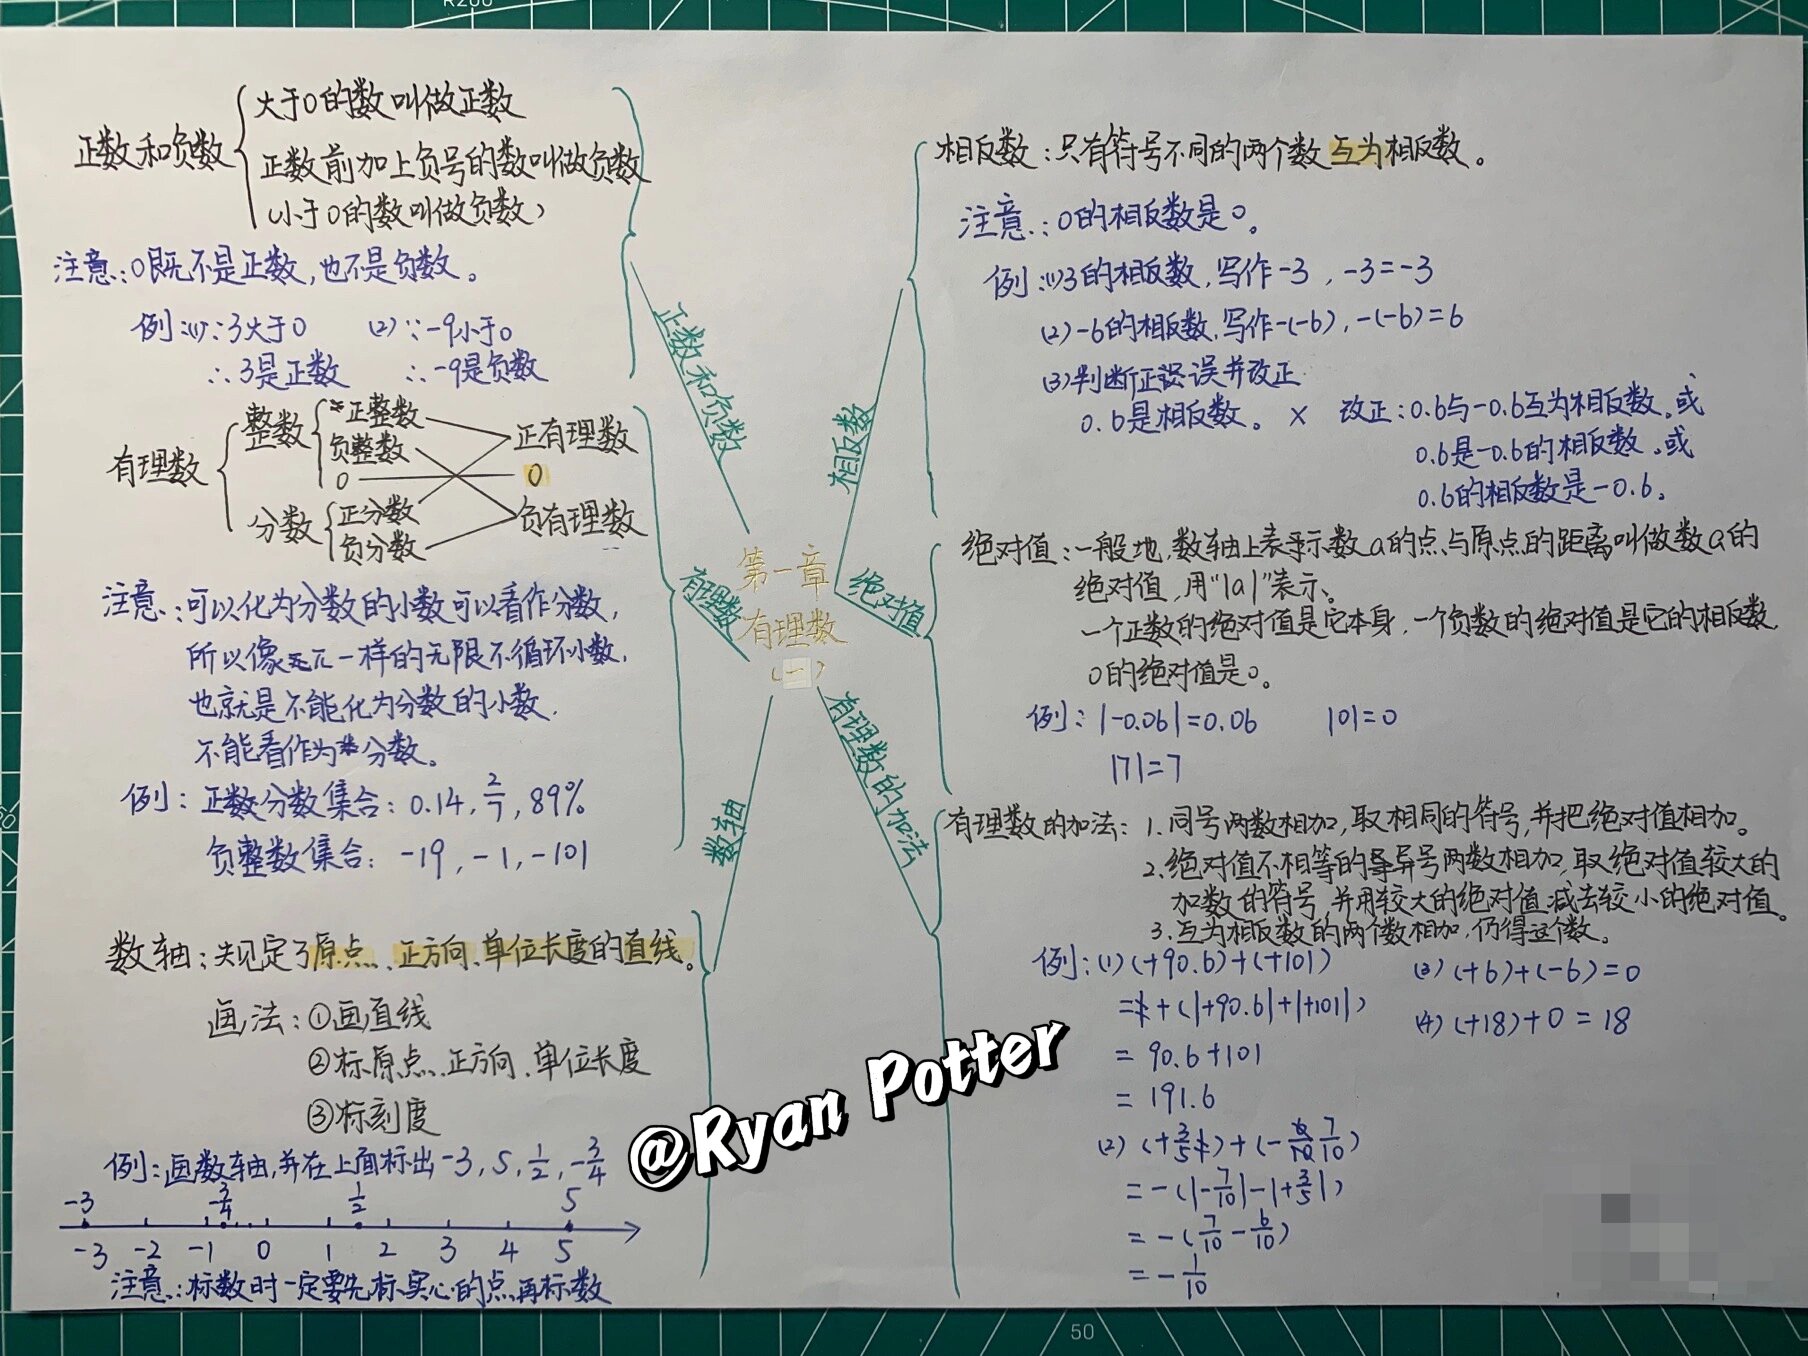 正数和负数
大于0的数叫做正数
正数前加上负号的数叫做负数
(小于0的数叫做负数)
注意:0既不是正数,也不是负数。
例:(1)∵3大于0 (2)∵-9小于0
∴3是正数 ∴-9是负数
有理数
整数
正整数
负整数
0
分数
正分数
负分数
正有理数
0
负有理数
注意:可以化为分数的小数可以看作分数,
所以像π一样的无限不循环小数,
也就是不能化为分数的小数,
不能看作为分数。
例:正数分数集合:0.14,2/7,89%
负整数集合:-19,-1,-101
数轴:规定了原点、正方向、单位长度的直线。
画法:①画直线
②标原点、正方向、单位长度
③标刻度
例:画数轴,并在上面标出-3,5,1/2,-3/4
-3 -3/4 1/2 5
-3 -2 -1 0 1 2 3 4 5
注意:标数时一定要先标实心的点再标数
正数和负数
有理数
数轴
第一章
有理数
(一)
相反数
绝对值
有理数的加法
相反数:只有符号不同的两个数互为相反数。
注意:0的相反数是0。
例:(1)3的相反数,写作-3,-3=-3
(2)-6的相反数,写作-(-6),-(-6)=6
(3)判断正误并改正
0.6是相反数。× 改正:0.6与-0.6互为相反数。或
0.6是-0.6的相反数。或
0.6的相反数是-0.6。
绝对值:一般地,数轴上表示数a的点与原点的距离叫做数a的
绝对值,用“|a|”表示。
一个正数的绝对值是它本身,一个负数的绝对值是它的相反数,
0的绝对值是0。
例:|-0.06|=0.06 |0|=0
|7|=7
有理数的加法:1.同号两数相加,取相同的符号,并把绝对值相加。
2.绝对值不相等的异号两数相加,取绝对值较大的
加数的符号,并用较大的绝对值减去较小的绝对值。
3.互为相反数的两个数相加,仍得这个数。
例:(1)(+90.6)+(+101) (3)(+6)+(-6)=0
=+(|+90.6|+|+101|) (4)(+18)+0=18
=90.6+101
=191.6
(2)(+3/5)+(-7/10)
=-(|-7/10|-|+3/5|)
=-(7/10-6/10)
=-1/10
@Ryan Potter
50